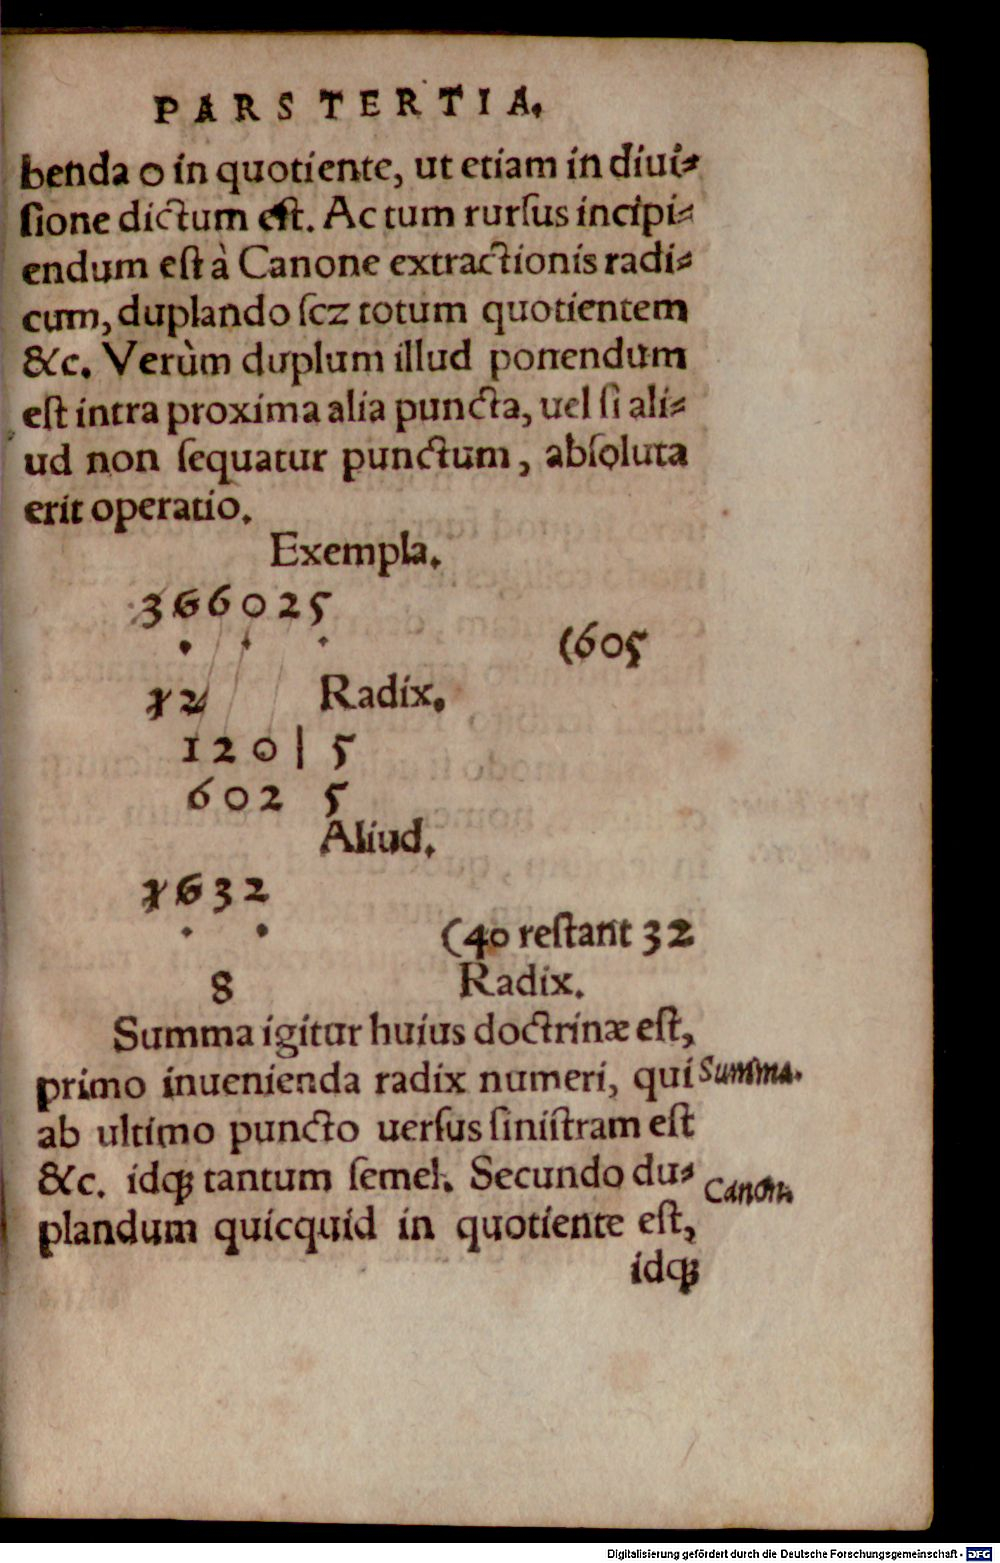 PARS TERTIA.
benda o in quotiente, ut etiam in diui⸗
ſione dictum eſt. Ac tum rurſus incipi⸗
endum eſt à Canone extractionis radi⸗
cum, duplando ſcz totum quotientem
&c. Verùm duplum illud ponendum
eſt intra proxima alia puncta, uel ſi ali⸗
ud non ſequatur punctum, abſoluta
erit operatio.
Exempla.
366025
. . .
(605
12 Radix.
120 | 5
602 5
Aliud.
1632
. .
(40 reſtant 32
8 Radix.
Summa igitur huius doctrinæ eſt,
primo inuenienda radix numeri, qui Summa.
ab ultimo puncto uerſus siniſtram eſt
&c. idqꝫ tantum ſemel. Secundo du⸗ Canon.
plandum quicquid in quotiente eſt,
idqꝫ
Digitalisierung gefördert durch die Deutsche Forschungsgemeinschaft - DFG